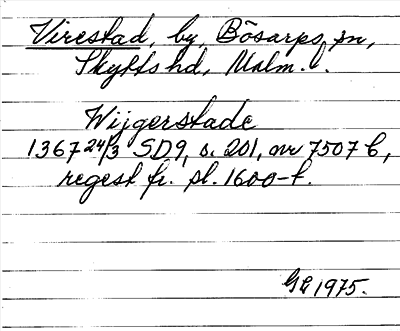 Virestad, by, Bösarps sn,
Skytts hd, Malm. l.
Wijgerstade
1367 24/3 SD9, s. 201, nr 7507 b,
regest fr. sl. 1600-t.
GE 1975.